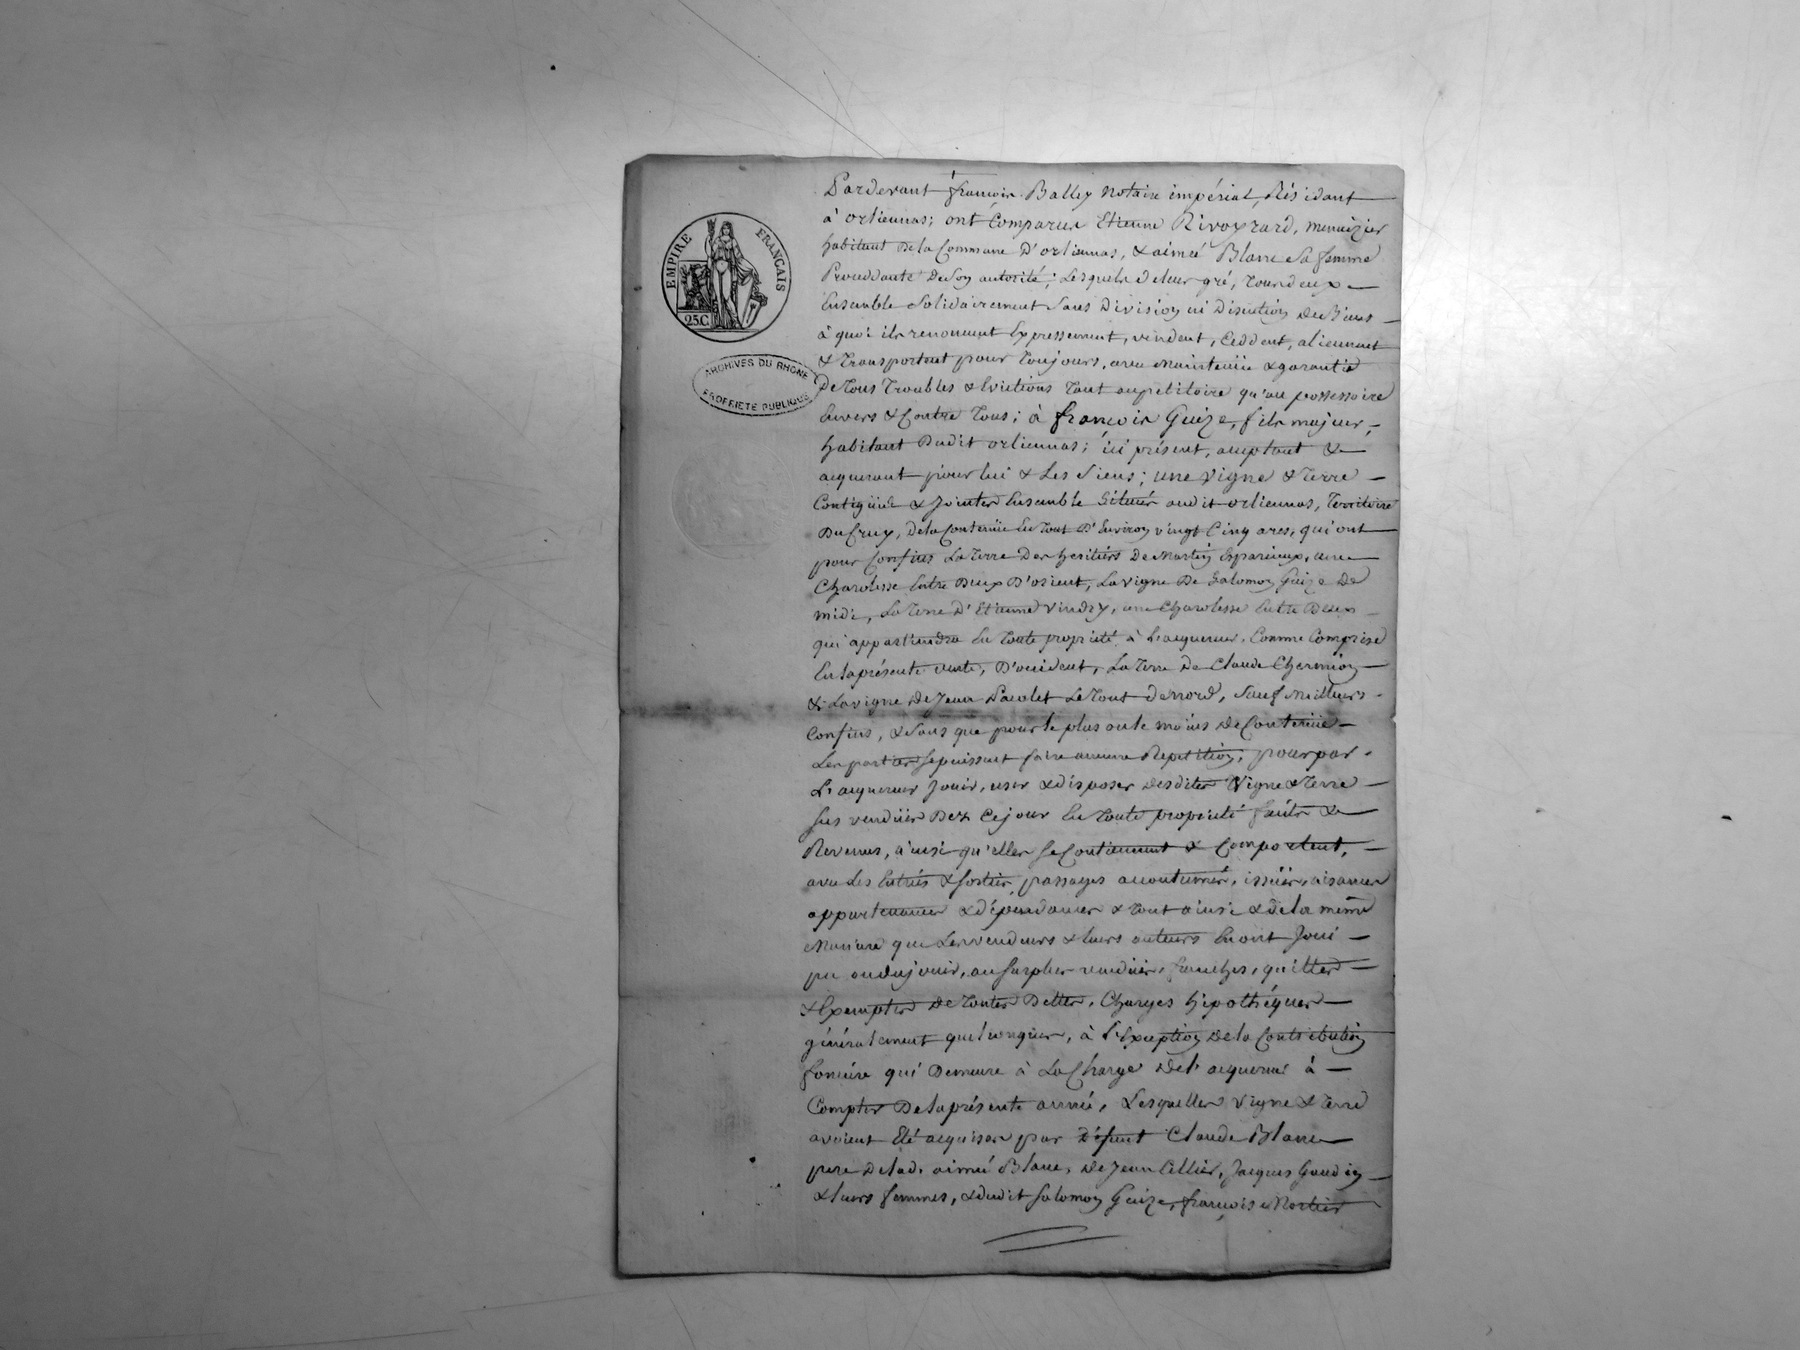 EMPIRE FRANCAIS
25C
ARCHIVES DU RHONE
PROPRIETE PUBLIQUE
Pardevant françois Balley Notaire impérial, Résidant
à orliennas; ont Comparus Etienne Rivoyrard, menuizier
habitant de la Commune D'orliennas, & aimée Blanc Sa femme
Proceddante De Son autorité; Lesquels de leur gré, tous deux
Ensemble Solidairement Sans Division ni Discution De Biens
à quoi ils renoncent Expressement, vendent, Ceddent, aliennent
& transportent pour toujours, avec Maintenüe & garantie
De tous Troubles & Evictions tant au petitoire qu'au possessoire
Envers & Contre tous; à françois Guize, fils majeur,
habitant Dudit orliennas; ici présent, acceptant &
acquerant pour lui & Les Siens; une vigne & terre
Contigües & Jointes Ensemble Situées audit orliennas, Territoire
Du Cruy, De la Contenüe En tout D'Environ vingt Cinq ares, qui ont
pour Confins La terre Des heritiers De Martin Esparcieux, une
Charolesse Entre Deux D'orient, La vigne De Salomon Guize De
midi, La terre D'Etienne Vindry, une Charolesse Entre Deux
qui appartiendra En toute propriété à L'acquereur, Comme Comprise
En la présente vente, D'occident, La terre De Claude Chermion
& La vigne De Jean Pacolet Le tout De nord, Sauf Meilleurs
Confins, & Sans que pour le plus ou le moins De Contenüe
Les parties Se puissent faire aucune Repetition, pour par
L'acquereur Jouir, user & disposer Desdites Vigne & terre
Sus vendües Dez Ce jour En toute propriété fruits &
Revenus, ainsi qu'elles Se Contiennent & Comportent,
avec Les Entrées & Sorties, passages accoutumés, issües, aisances
appartenances & dépendances & tout ainsi & de la même
Maniere que Les vendeurs & leurs auteurs En ont Joui
pu ou du jouir, au Surplus vendües, franches, quittes
& Exemptes De toutes Dettes, Charges hipothéques
généralement quelconques, à L'Exception De la Contribution
fonciére qui Demeure à La Charge De L'acquereur à
Compter De la présente année, Lesquelles vigne & terre
avoient Eté acquises par Défunt Claude Blanc
pere De lad. aimée Blanc, De Jean Cellier, Jacques Gaudin
& leurs femmes, & dudit Salomon Guize, françoise Mortier